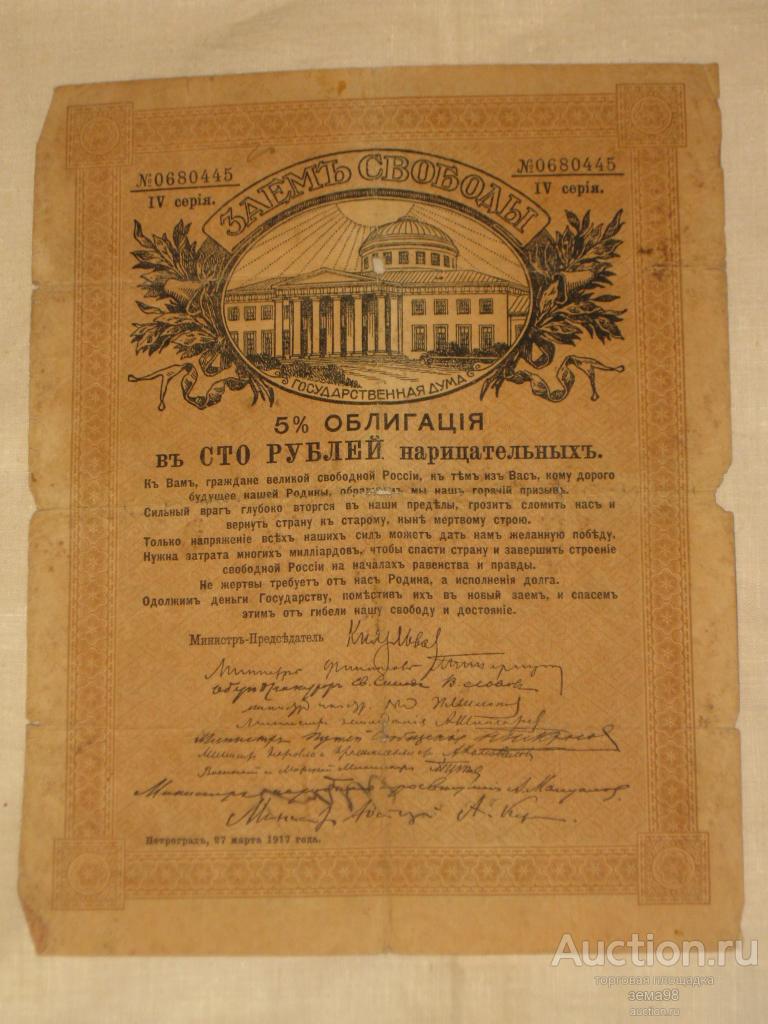 №0680445
IV серія.
№0680445
IV серія.
ЗАЕМЪ СВОБОДЫ
ГОСУДАРСТВЕННАЯ ДУМА
5% ОБЛИГАЦІЯ
въ СТО РУБЛЕЙ нарицательныхъ.
Къ Вамъ, граждане великой свободной Россіи, къ тѣмъ изъ Васъ, кому дорого
будущее нашей Родины, обращаемъ мы нашъ горячій призывъ.
Сильный врагъ глубоко вторгся въ наши предѣлы, грозитъ сломить насъ и
вернуть страну къ старому, нынѣ мертвому строю.
Только напряженіе всѣхъ нашихъ силъ можетъ дать намъ желанную побѣду.
Нужна затрата многихъ милліардовъ, чтобы спасти страну и завершить строеніе
свободной Россіи на началахъ равенства и правды.
Не жертвы требуетъ отъ насъ Родина, а исполненія долга.
Одолжимъ деньги Государству, помѣстивъ ихъ въ новый заемъ, и спасемъ
этимъ отъ гибели нашу свободу и достояніе.
Министръ-Предсѣдатель Князь Львов
Министръ Финансовъ
Оберъ-Прокурор Св. Синода В. Львов
Министръ земледѣлія А. Шингарев
Министръ Путей Сообщенія Н. Некрасов
Военный и Морской Министръ
Министръ народнаго просвѣщенія А. Мануилов
Министр Юстиціи А. Керен
Петроградъ, 27 марта 1917 года.
Auction.ru
торговая площадка
зема98
auction.ru